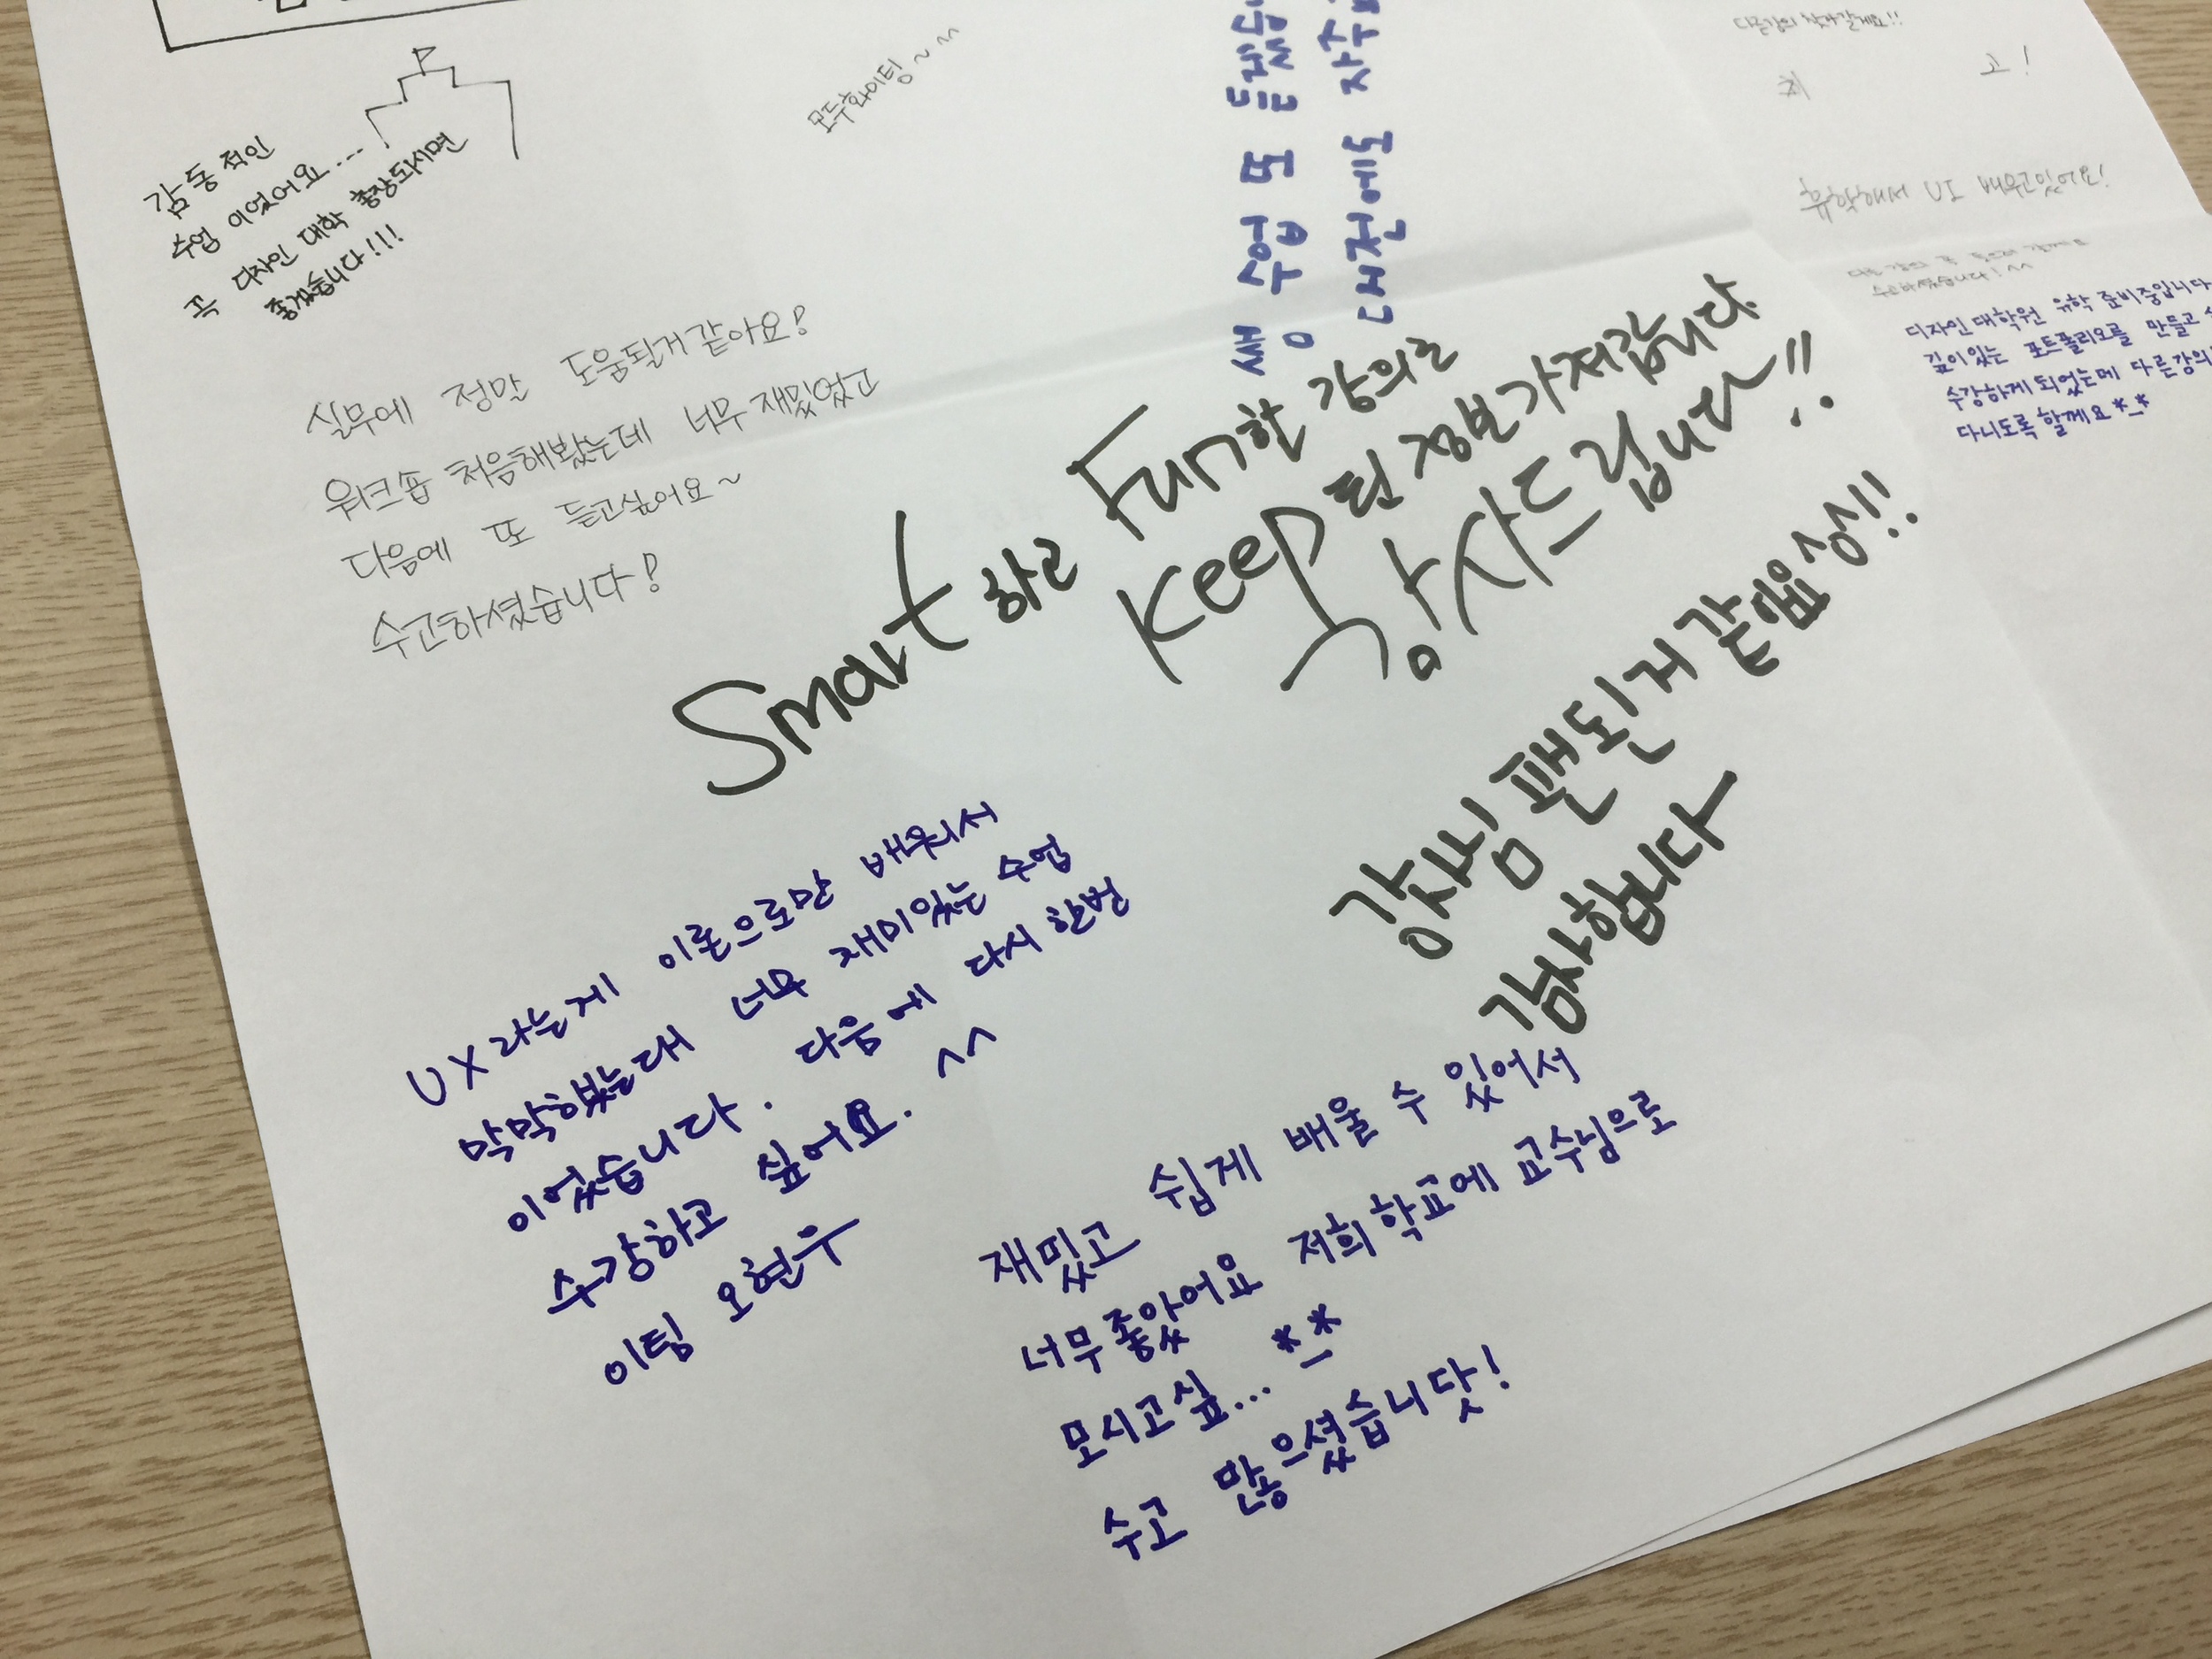 감동적인
수업 이었어요...
꼭 디자인 대학 총장되시면
좋겠습니다!!!
모두화이팅~^^
실무에 정말 도움될거같아요!
워크숍 처음해봤는데 너무재밌었고
다음에 또 듣고싶어요~
수고하셨습니다!
수업 또
대전에도 자주
Smart하고 Fun한 강의로
Keep된 정보가져갑니다.
감사드립니다!!
강사님 팬된거 같음요 성!!
감사합니다
UX라는게 이론으로만 배워서
막막했는데 너무 재미있는 수업
이었습니다. 다음에 다시 한번
수강하고 싶어요. ^^
이팅 오현우
재밌고 쉽게 배울 수 있어서
너무좋았어요 저희학교에 교수님으로
모시고싶... *_*
수고 많으셨습니닷!
다른강의 찾아갈게요!!
최 고!
휴학해서 UI 배우고있어요!
수고하셨습니다!^^
디자인대학원 유학 준비중입니다
깊이있는 포트폴리오를 만들고
수강하게되었는데 다른강의
다니도록할께요*_*